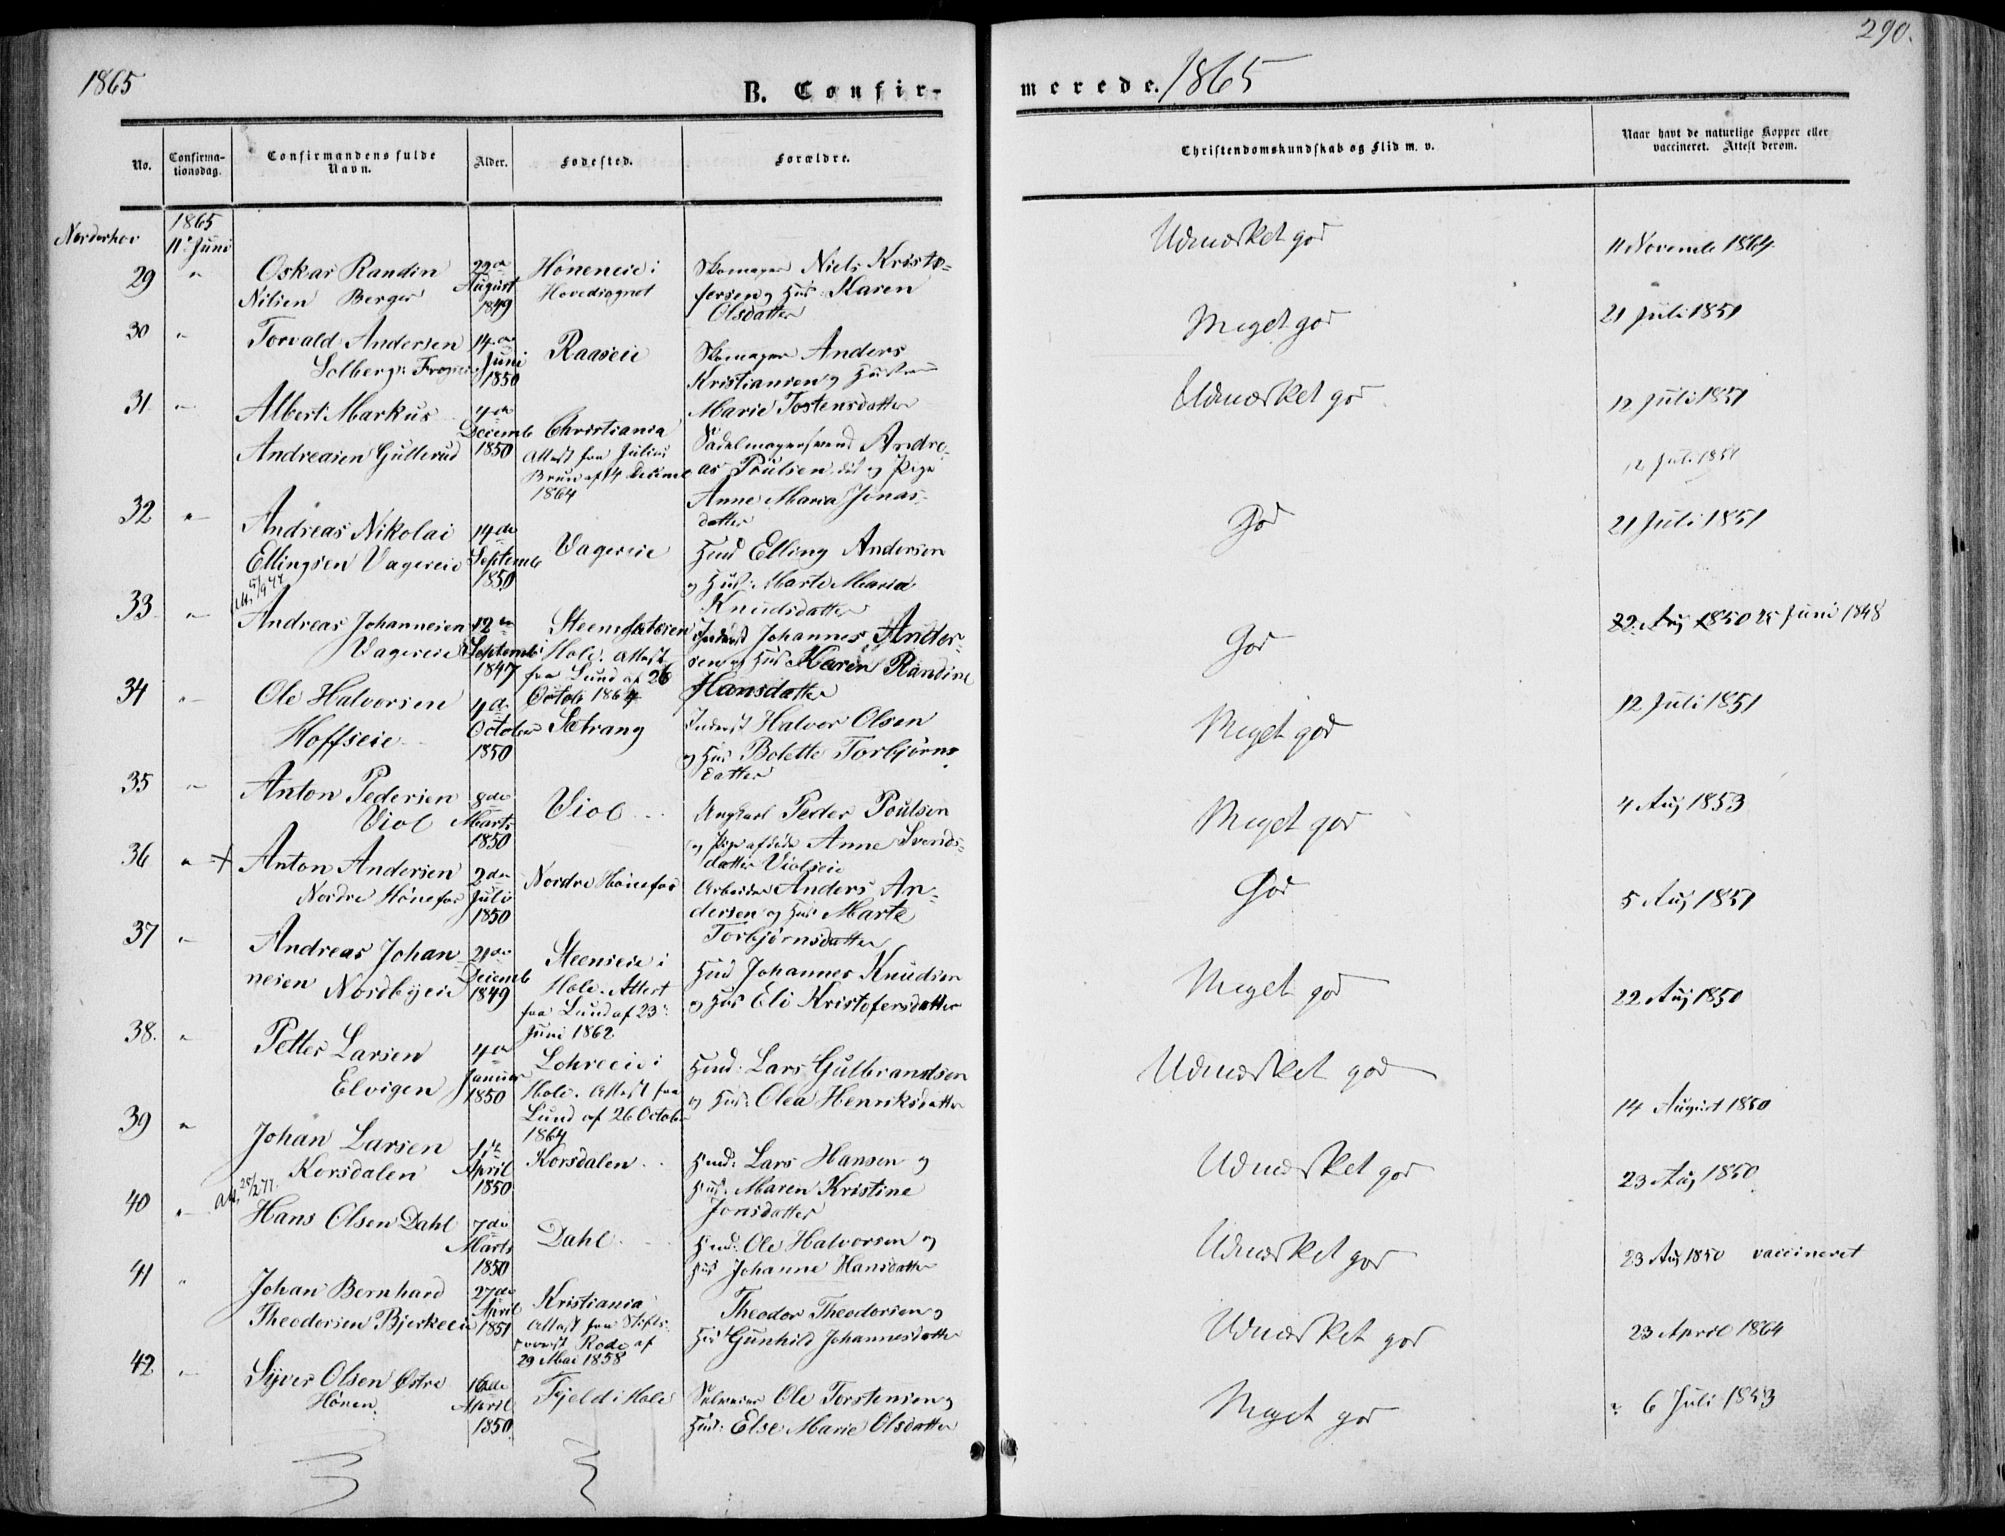 290.
1865
B. Confir-
merede. 1865
No.
Confirma-
tionsdag.
Confirmandens fulde
Navn.
Alder.
Fødested.
Forældre.
Christendomskundskab og Flid m. v.
Naar havt de naturlige Kopper eller
vaccineret. Attest derom.
Norderhov
1865
11te Juni
29
Oskar Randin
Nilsen Berger
22de
August
1849
Høneneie i
Hovedsognet
Skomager Niels Kristo-
fersen og Hus: Karen
Olsdatter
Udmærket god
11 Novemb 1864
30
Torvald Andersen
Solberg
14de
Juni
1850
Raaseie
Skomager Anders
Kristiansen og Hustru
Marie Tostensdatter
Meget god
21 Juli 1851
31
Albert Markus
Andreasen Gullerud
4de
Decemb
1850
Christiania
Attest fra Julius
Bruun af 4 Decemb
1864
Sadelmagersvend Andre-
as Poulsen og Pige
Anne Maria Jonas-
datter
Udmærket god
12 Juli 1851
12 Juli 1851
32
Andreas Nikolai
Ellingsen Vagereie
14de
Septemb
1850
Vagereie
Husd Elling Andersen
og Hust: Marte Maria
Knudsdatter
God
21 Juli 1851
33
Andreas Johannesen
Vagereie
12te
Septemb
1847
Hole. Attest
fra Lund af 26
Octob 1864
Inderst Johannes Ander-
sen og Hus Karen Randine
Hansdatter
God
22 Aug 1850 25 Juni 1848
34
Ole Halvorsen
Hoffseie
4de
October
1850
Sætrang
Inderst Halvor Olsen
og Hus Bolette Torbjørns
datter
Meget god
12 Juli 1851
35
Anton Pedersen
Viol
8de
Marts
1850
Viol
Ungkarl Peder Poulsen
og Pige afdøde Anne Svends-
datter Violseie
Meget god
4 Aug 1853
36
Anton Andersen
Nordre Hønefos
2den
Juli
1850
Nordre Hønefos
Arbeider Anders An-
dersen og Hus Marte
Torbjørnsdatter
God
5 Aug 1851
37
Andreas Johan
nesen Nordbyeie
21de
Decemb
1849
Steenseie i
Hole. Attest
fra Lund af 23
Juni 1862
Husd Johannes Knudsen
og Hus Eli Kristofersdatter
Meget god
22 Aug 1850
38.
Petter Larsen
Elvigen
4de
Januar
1850
Lohreeie i
Hole. Attest fra
Lund af 26 October
1864
Husd: Lars Gulbrandsen
og Hus: Olea Henriksdatter
Udmærket god
14 August 1850
39
Johan Larsen
Korsdalen
1ste
April
1850
Korsdalen
Husd: Lars Hansen og
Hus: Maren Kristine
Jonsdatter
Udmærket god
23 Aug 1850
40
Hans Olsen Dahl
7de
Marts
1850
Dahl
Husd: Ole Halvorsen og
Hus Johanne Hansdatter
Udmærket god
23 Aug 1850 vaccineret
41
Johan Bernhard
Theodorsen Bjerkeeie
27de
April
1851
Kristiania
Attest fra Stifts-
provst Rode af
29 Mai 1858
Theodor Theodorsen og
Hus Gunhild Johannesdatter
Udmærket god
23 April 1864
42
Syver Olsen Østre
Hønen
16de
April
1850
Fjeld i Hole
Selveier Ole Torstensen og
Hus: Else Marie Olsdatter
Meget god
6 Juli 1853